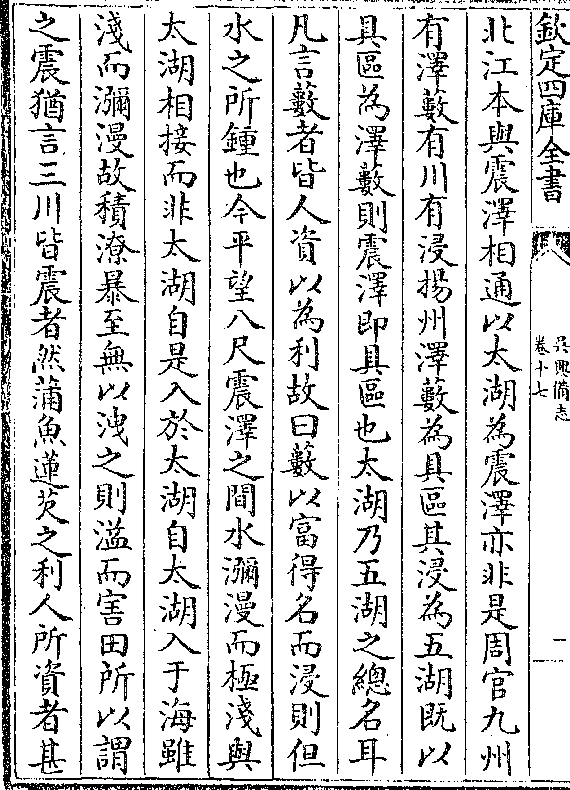 欽定四庫全書
吳興備志
卷十七
一
北江本與震澤相通以太湖為震澤亦非是周官九州
有澤藪有川有浸揚州澤藪為具區其浸為五湖既以
具區為澤藪則震澤即具區也太湖乃五湖之總名耳
凡言藪者皆人資以為利故曰藪以富得名而浸則但
水之所鍾也今平望八尺震澤之間水瀰漫而極淺與
太湖相接而非太湖自是入於太湖自太湖入于海雖
淺而瀰漫故積潦暴至無以洩之則溢而害田所以謂
之震猶言三川皆震者然蒲魚蓮芡之利人所資者甚